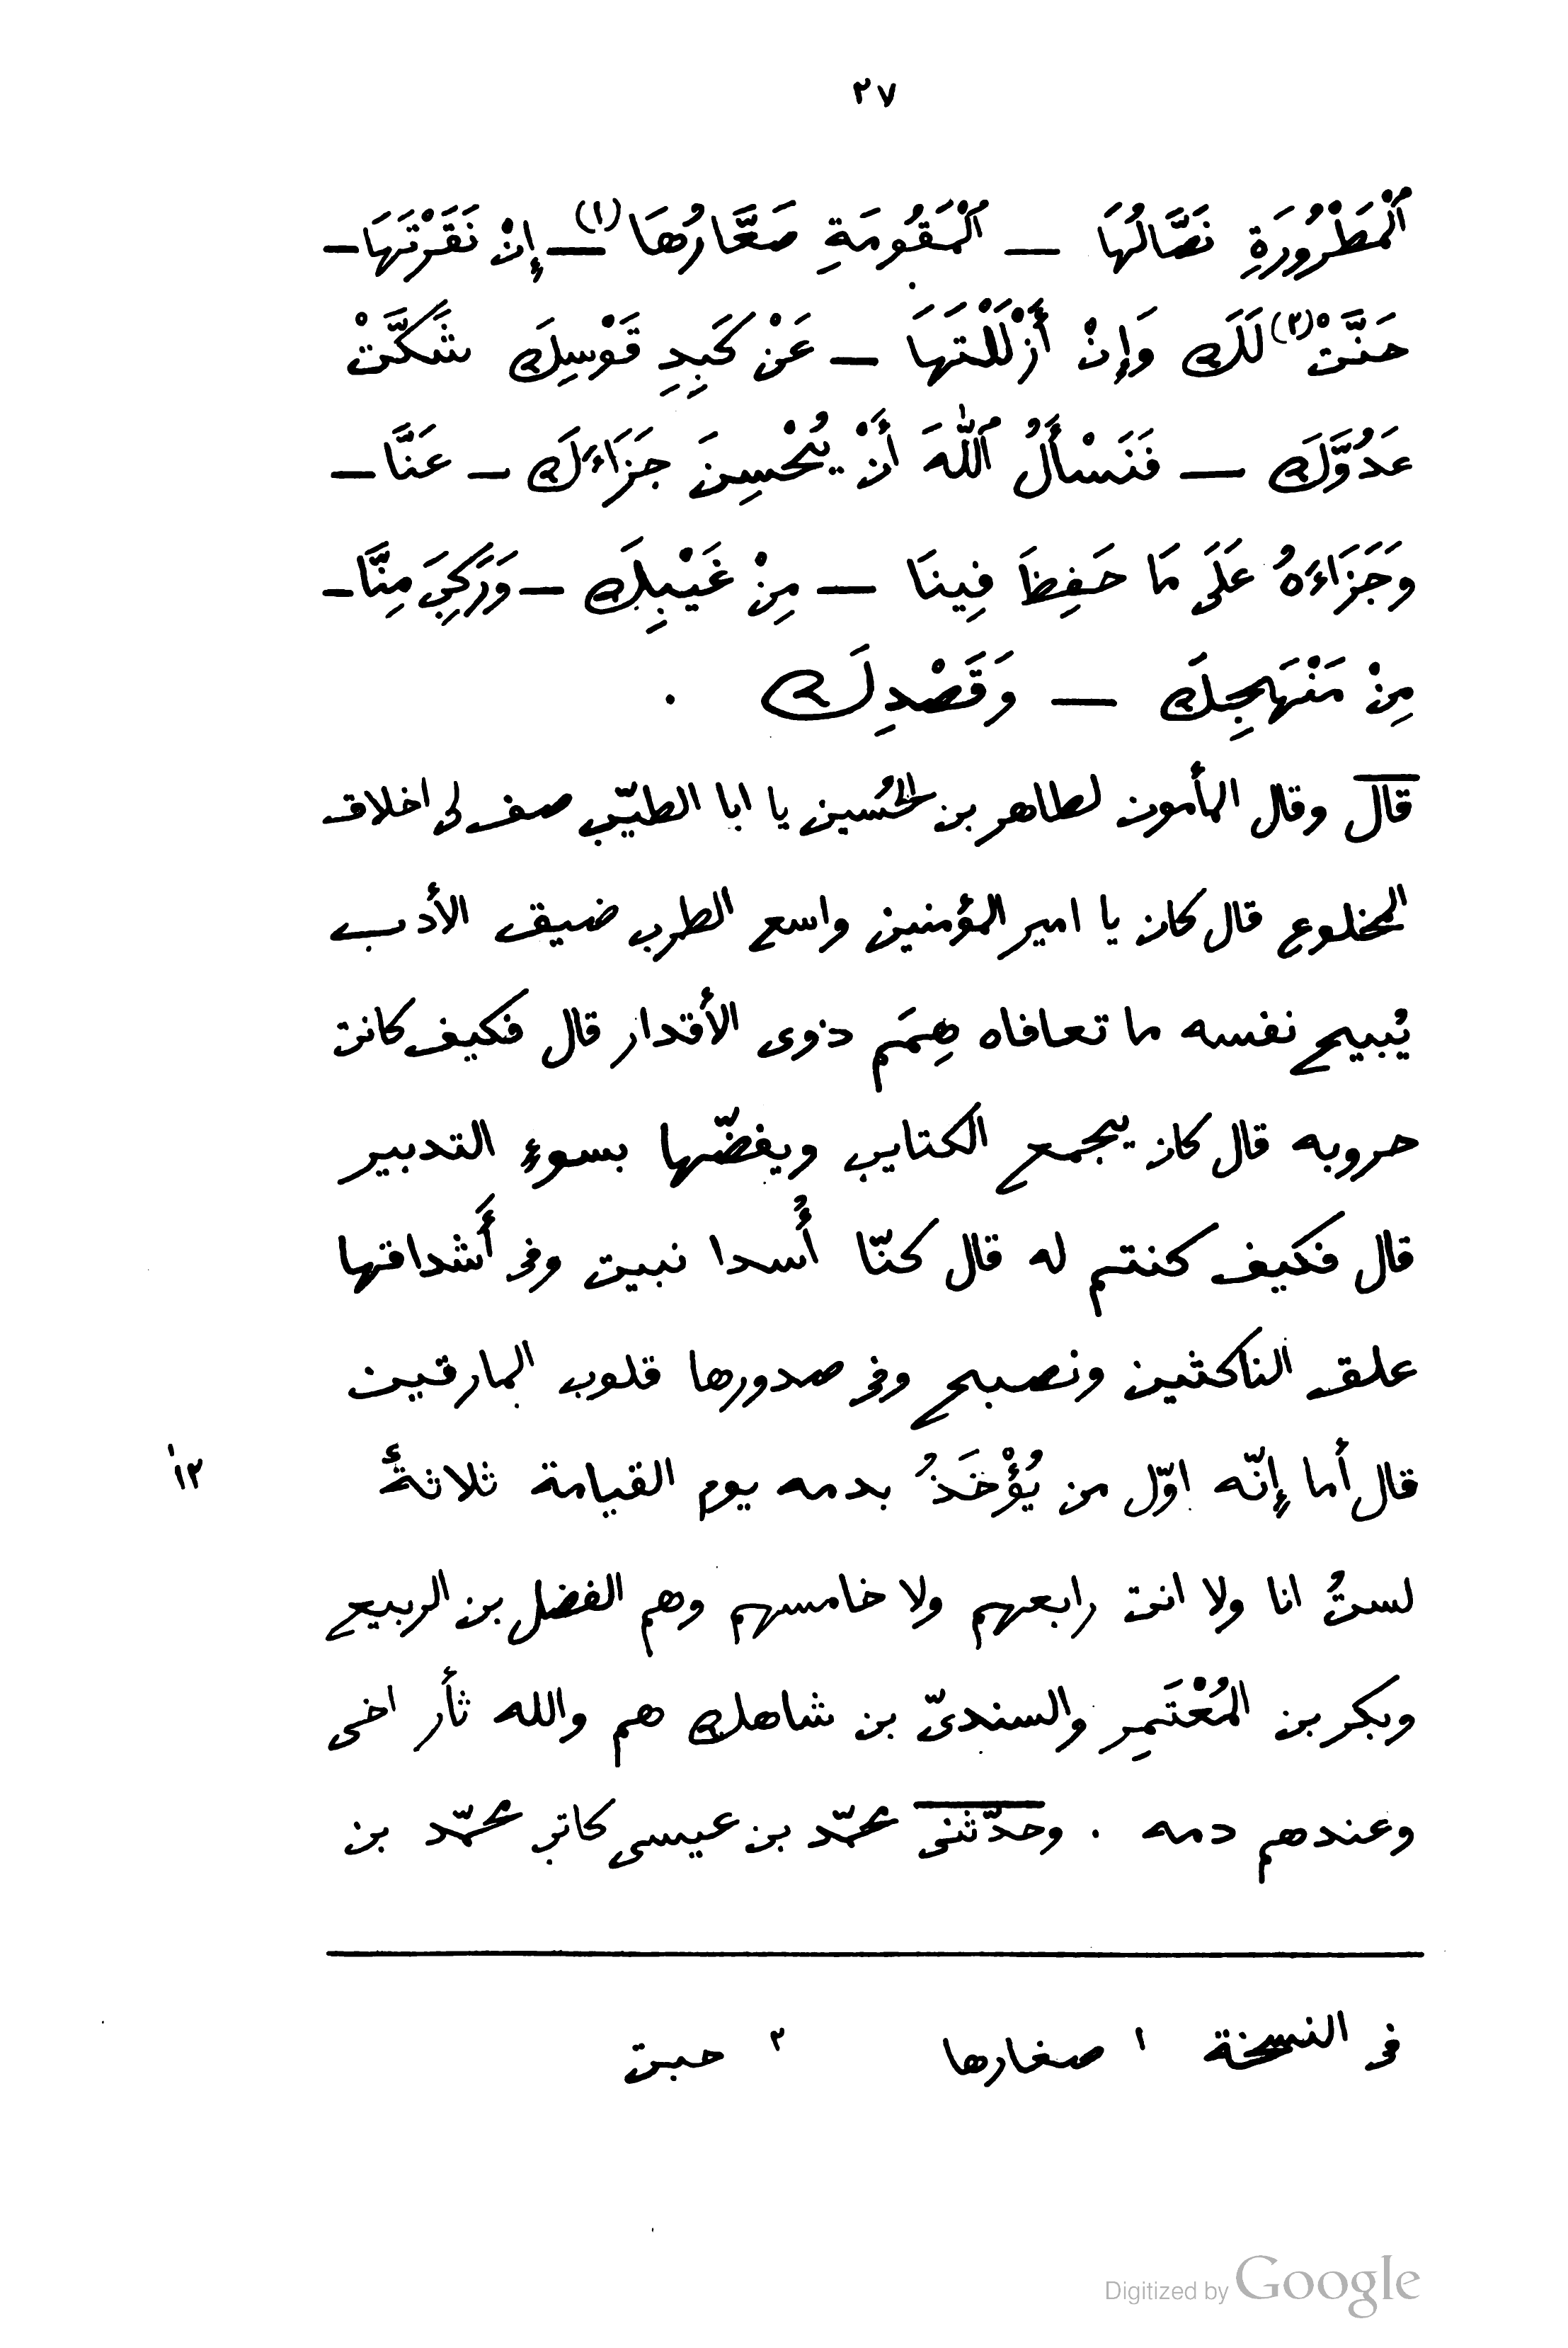 ٢٧
ٱلْمَطْرُورَةِ نَصَّالُهَا — ٱلْمَقُومَةِ صَعَّارُهَا (١) — إِنْ نَقَرْتَهَا —
حَنَّتْ (٢) لَكَ وَإِنْ أَزْلَلْتَهَا — عَنْ كَبِدِ قَوْسِكَ شَكَّتْ
عَدُوَّكَ — فَنَسْأَلُ ٱللّٰهَ أَنْ يُحْسِنَ جَزَاءَكَ — عَنَّا —
وَجَزَاءَهُ عَلَى مَا حَفِظَ فِينَا — مِنْ غَيْبِكَ — وَرَكِيَ مِنَّا —
مِنْ مَنْهَجِكَ — وَقَصْدِكَ .
قال وقال المأمون لطاهر بن الحُسين يا ابا الطيّب صف لى اخلاق
المخلوع قال كان يا امير المؤمنين واسع الطرب ضيق الأدب
يُبيح نفسه ما تعافاه هِمَم ذوى الأقدار قال فكيف كانت
حروبه قال كان يجمع الكتايب ويفضّها بسوءِ التدبير
قال فكيف كنتم له قال كنّا أُسدا نبيت وفى أَشداقها
علق الناكثين ونصبح وفى صدورها قلوب المارقين
قال أما إِنّه اوّل من يُؤْخَذُ بدمه يوم القيامة ثلاثةٌ
١٢
لستُ انا ولا انت رابعهم ولا خامسهم وهم الفضل بن الربيع
وبكر بن المُعْتَمِر والسندىّ بن شاهك هم والله ثأر اخى
وعندهم دمه . وحدّثنى محمّد بن عيسى كاتب محمّد بن
فى النسخة ١ صغارها ٢ حبت
Digitized by Google